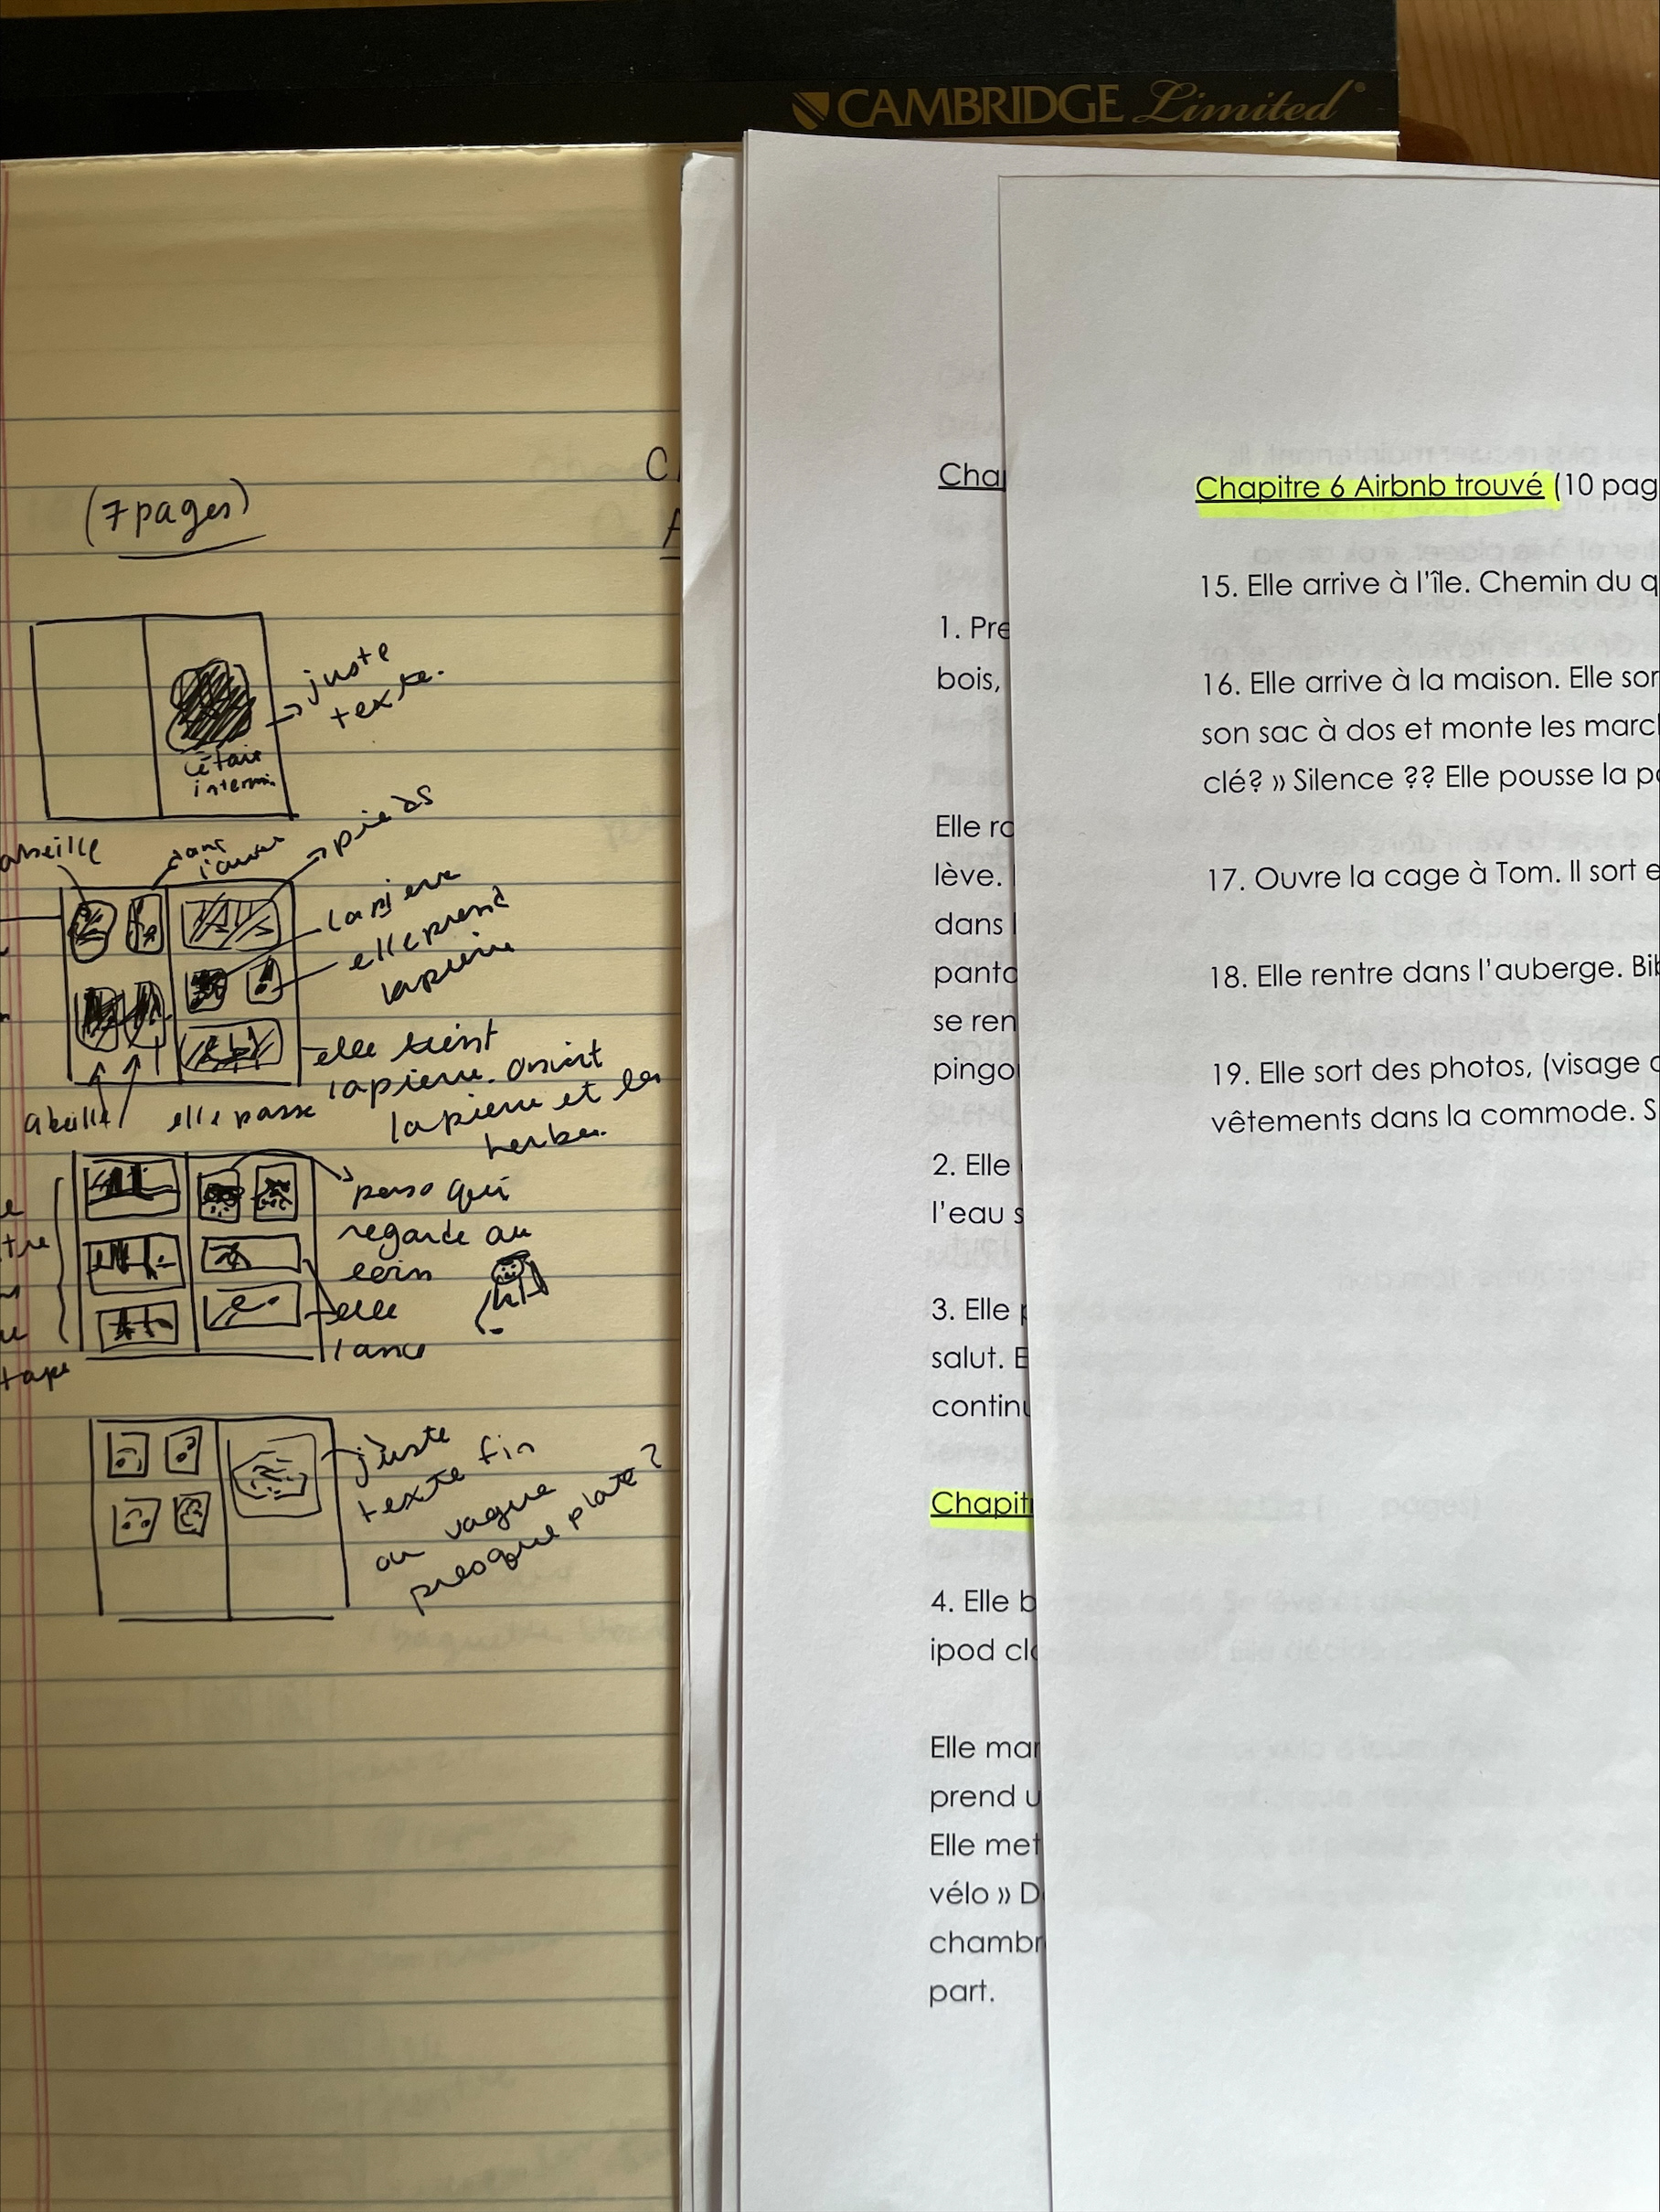 CAMBRIDGE Limited
(7 pages)
juste
texte.
c'était
intermi
pieds
la pierre
elle prend
la pierre
elle tient
la pierre. on voit
la pierre et les
herbes.
abeille
elle passe
perso qui
regarde au
loin
elle
lance
tape
juste
texte fin
ou vague
presque plate?
Cha
1. Pre
bois,
Elle ro
lève.
dans l
panta
se ren
pingo
2. Elle
l'eau s
3. Elle p
salut. E
continu
Chapit
4. Elle b
ipod cla
Elle mar
prend u
Elle met
vélo » D
chambr
part.
Chapitre 6 Airbnb trouvé (10 pag
15. Elle arrive à l'île. Chemin du q
16. Elle arrive à la maison. Elle sor
son sac à dos et monte les march
clé? » Silence ?? Elle pousse la po
17. Ouvre la cage à Tom. Il sort e
18. Elle rentre dans l'auberge. Bib
19. Elle sort des photos, (visage d
vêtements dans la commode. S